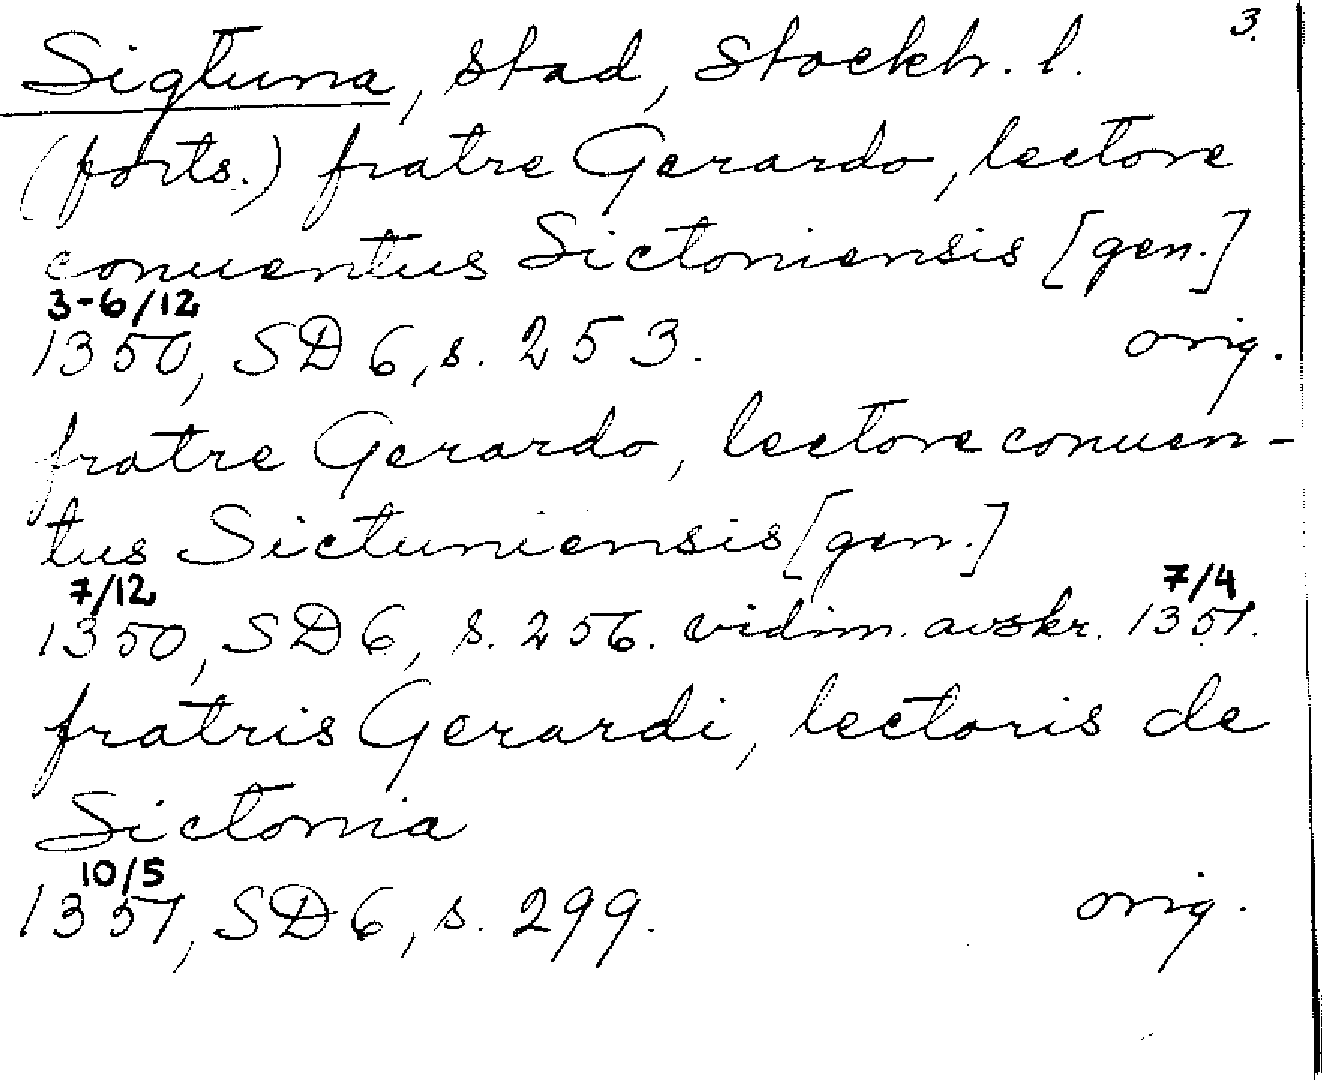 3.
Sigtuna, stad, Stockh. l.
(forts.) fratre Gerardo, lectore
conuentus Sictoniensis [gen.]
3-6/12
1350, SD 6, s. 253. orig.
fratre Gerardo, lectore conuen-
tus Sictuniensis [gen.]
7/12 7/4
1350, SD 6, s. 256. vidim. avskr. 1351.
fratris Gerardi, lectoris de
Sictonia
10/5
1351, SD 6, s. 299. orig.